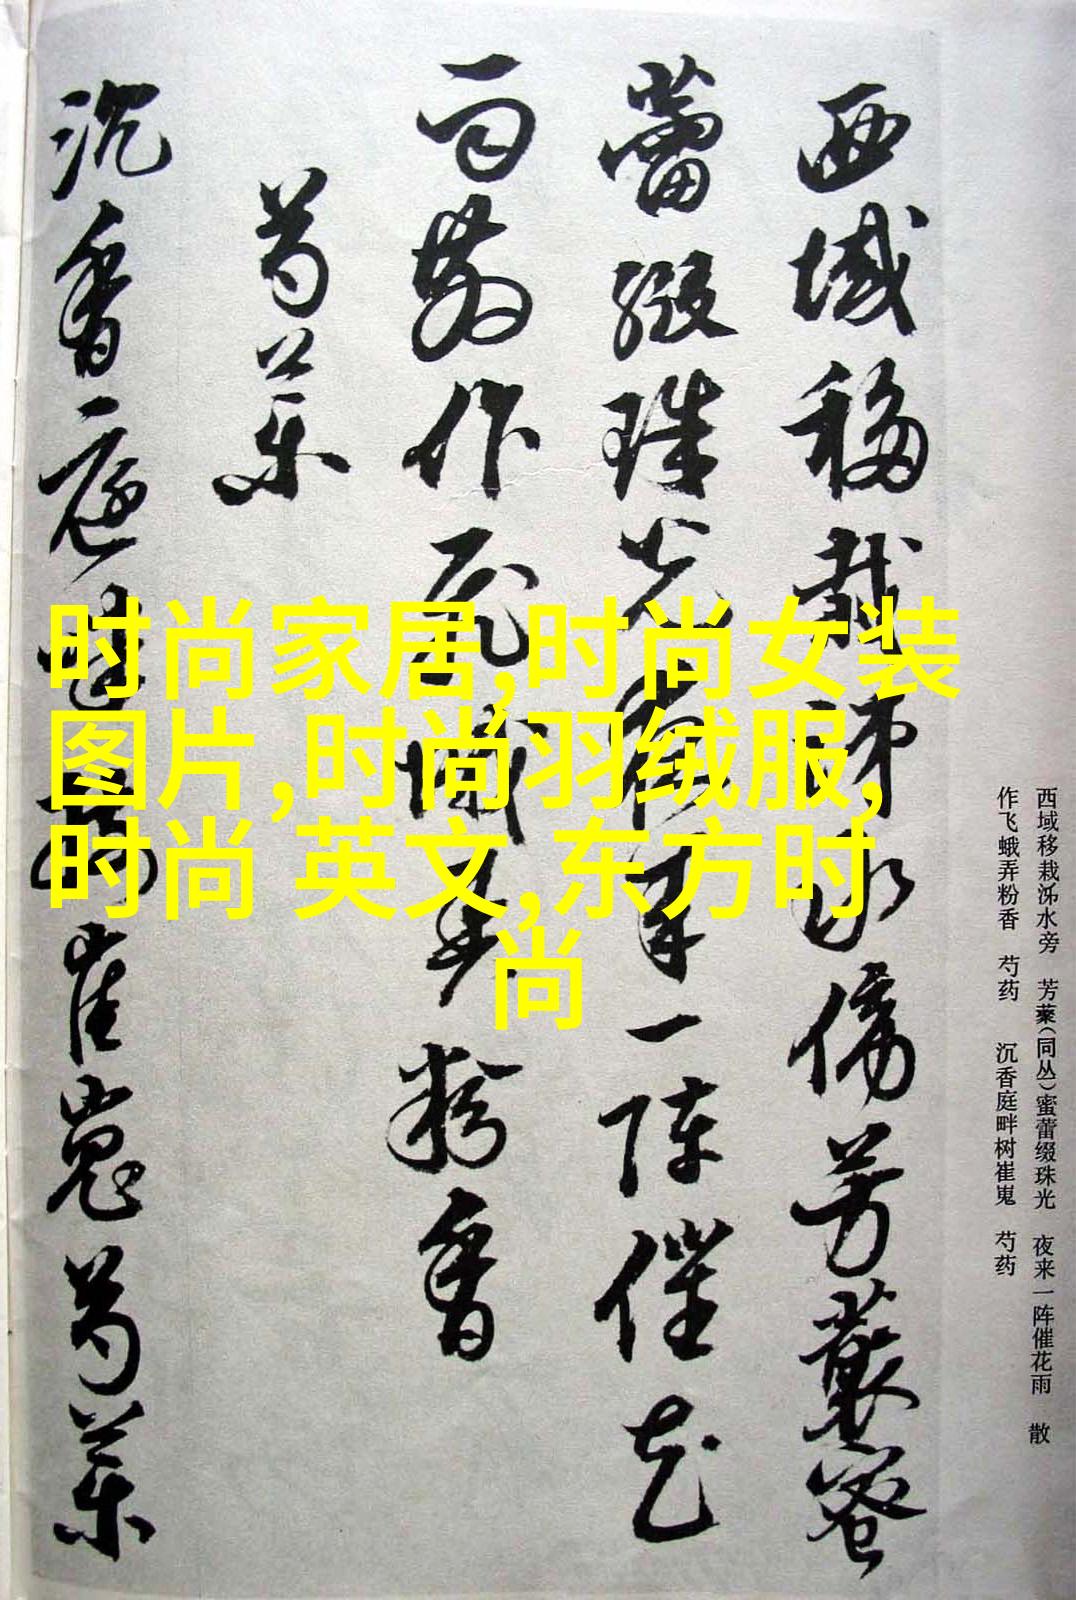 西域移栽泲水旁 芳藂(同丛)蜜蕾缀珠光 夜来一阵催花雨 散
作飞蛾弄粉香 芍药 沉香庭畔树崔嵬 芍药
西域移栽泲水傍芳藂蜜
蕾綴珠光夜来一陣催花
雨散作飛蛾弄粉香
芍藥
沉香庭畔樹崔嵬芍藥
时尚家居,时尚女装
图片,时尚羽绒服,
时尚 英文,东方时
尚